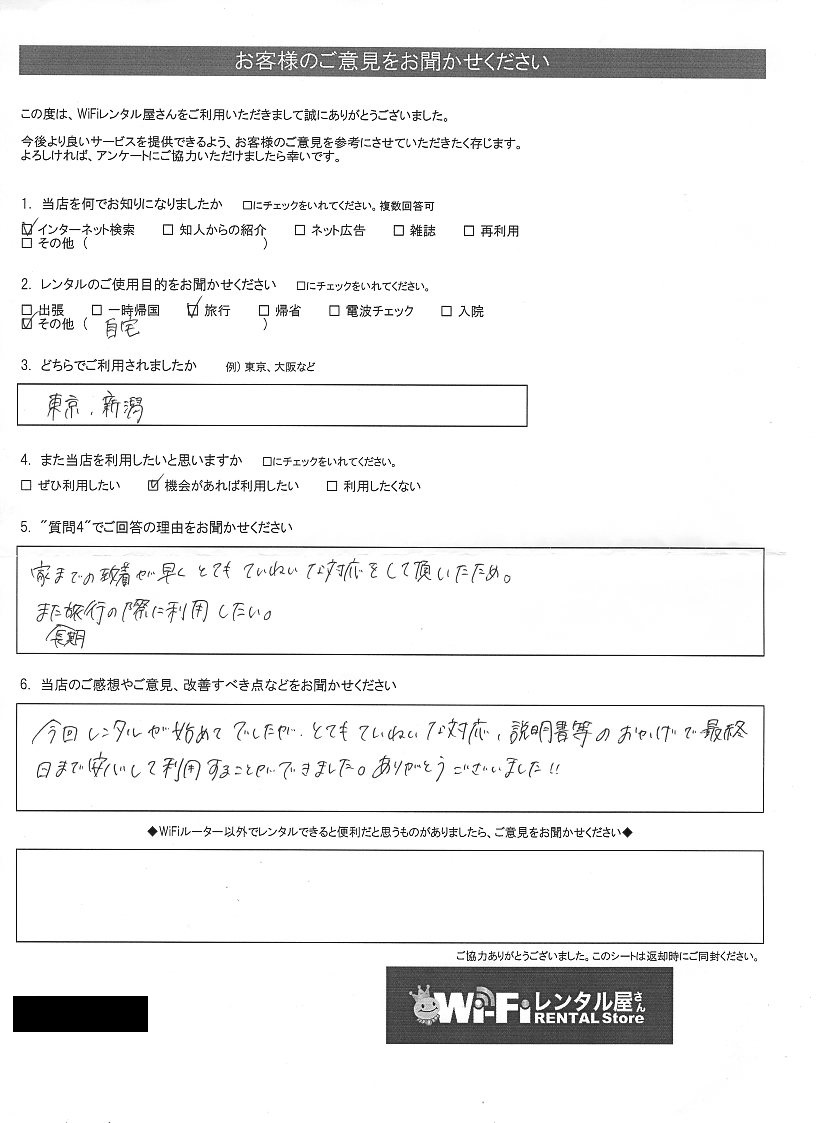 お客様のご意見をお聞かせください
この度は、WiFiレンタル屋さんをご利用いただきまして誠にありがとうございました。
今後より良いサービスを提供できるよう、お客様のご意見を参考にさせていただきたく存じます。
よろしければ、アンケートにご協力いただけましたら幸いです。
1. 当店を何でお知りになりましたか □にチェックをいれてください。複数回答可
☑インターネット検索 □ 知人からの紹介 □ ネット広告 □ 雑誌 □ 再利用
□ その他 ( )
2. レンタルのご使用目的をお聞かせください □にチェックをいれてください。
□ 出張 □ 一時帰国 ☑ 旅行 □ 帰省 □ 電波チェック □ 入院
☑ その他 ( 自宅 )
3. どちらでご利用されましたか 例) 東京、大阪など
東京、新潟
4. また当店を利用したいと思いますか □にチェックをいれてください。
□ ぜひ利用したい ☑ 機会があれば利用したい □ 利用したくない
5. "質問4"でご回答の理由をお聞かせください
家までの到着が早くとてもていねいな対応をして頂いたため。
また旅行の際に利用したい。
長期
6. 当店のご感想やご意見、改善すべき点などをお聞かせください
今回レンタルが始めてでしたが、とてもていねいな対応、説明書等のおかげで最終
日まで安心して利用することができました。ありがとうございました!!
◆WiFiルーター以外でレンタルできると便利だと思うものがありましたら、ご意見をお聞かせください◆
ご協力ありがとうございました。このシートは返却時にご同封ください。
Wi-Fiレンタル屋さん
RENTAL Store